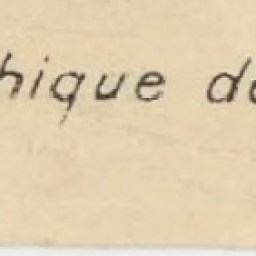 hique de